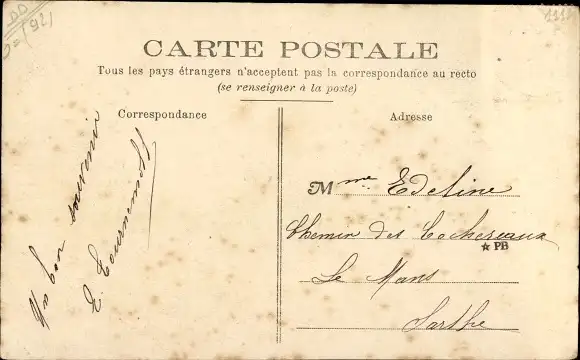 CARTE POSTALE
Tous les pays étrangers n'acceptent pas la correspondance au recto
(se renseigner à la poste)
Correspondance
Adresse
bon souvenir
Mme Edeline
Chemin des Cochereaux
★ PB
Le Mans
Sarthe